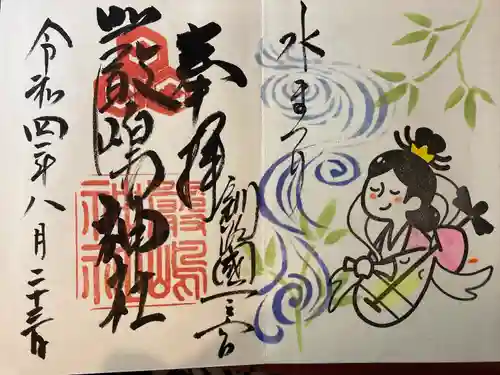 水まつり
釧路國一之宮
奉拝
嚴嶋神社
嚴嶋神社
令和四年八月二十三日